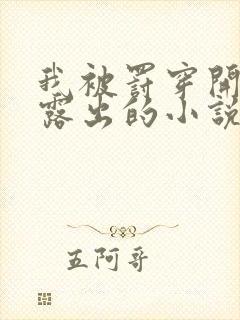 我被罰穿開
露出的小説
五阿哥